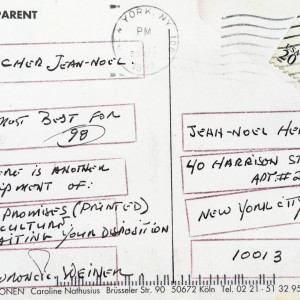 PARENT
YORK NY
PM
CHER JEAN-NOEL:
MOST BEST FOR
98
HERE IS ANOTHER
SHIPMENT OF:
PROMISES (PRINTED)
CULTURE
WAITING YOUR DISPOSITION
WEINER
JEAN-NOEL HE
40 HARRISON ST
APT#2
NEW YORK CITY
10013
IONEN Caroline Nathusius Brüsseler Str. 90 50674 Köln Tel. 02 21 - 51 32 95